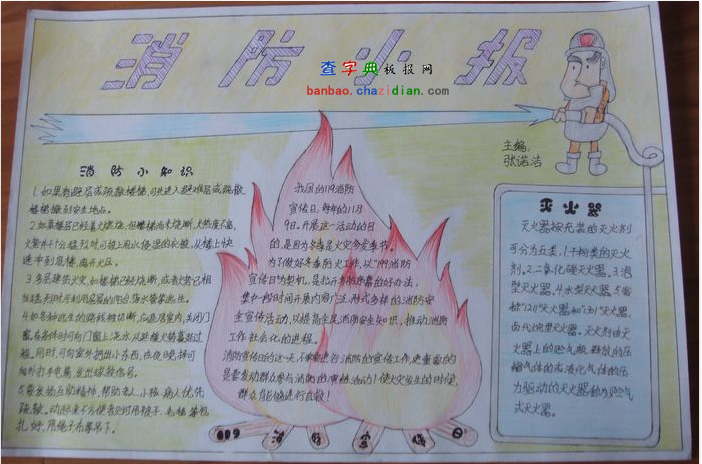 消防小报
查字典板报网
banbao.chazidian.com
主编:
张诺洁
消防小知识
1.如果有避层或疏散楼梯,可先进入避难层或疏散
楼梯撤到安全地点。
2.如果楼层已经着火燃烧,但楼梯尚未烧断,火势并不
十分猛烈时可披上用水浸湿的衣被,从楼上快
速冲到
离开火区。
3.多层建筑火灾,如楼梯已经烧断,或者火势已相
当猛烈时可利用房屋的阳台
4.如各种逃生的路线被切断,应退居室内,关闭门
窗,有条件时可向门窗上浇水,以延缓火势蔓延过
程,同时,可向室外扔出小东西,在夜晚则可
向外打手电筒,发出求救信号。
5.要发扬互助精神,帮助老人、小孩、病人优先
疏散,
用被子、毛毯等包
扎好,用绳子布等吊下。
我国的119消防
宣传日,每年的11月
9日,开展这一活动的目
的,是因为冬季是火灾多发季节。
为了做好冬季防火工作,以"119消防
宣传日"为契机,是
的好办法,
集中一段时间开展内容广泛、形式多样的消防安
全宣传活动,以提高全民消防安全知识,推动消防
工作社会化的进程。
消防宣传日的这一天,不仅要进行消防的宣传工作,更重要的
是要发动群众参与消防的演练活动!使火灾发生的时候,
群众能够进行自救!
119消防宣传日
灭火器
灭火器按充装的灭火剂
可分为五类,1.干粉类的灭火
剂,2.二氧化碳灭火器,3.泡
型灭火器,4.水型灭火器,5.
"1211"灭火器和"1301"灭火器,
灭火器。灭火剂由灭
火器上的贮气瓶释放的压
缩气体的或液化气体的压
力驱动的灭火器称为贮气
式灭火器。